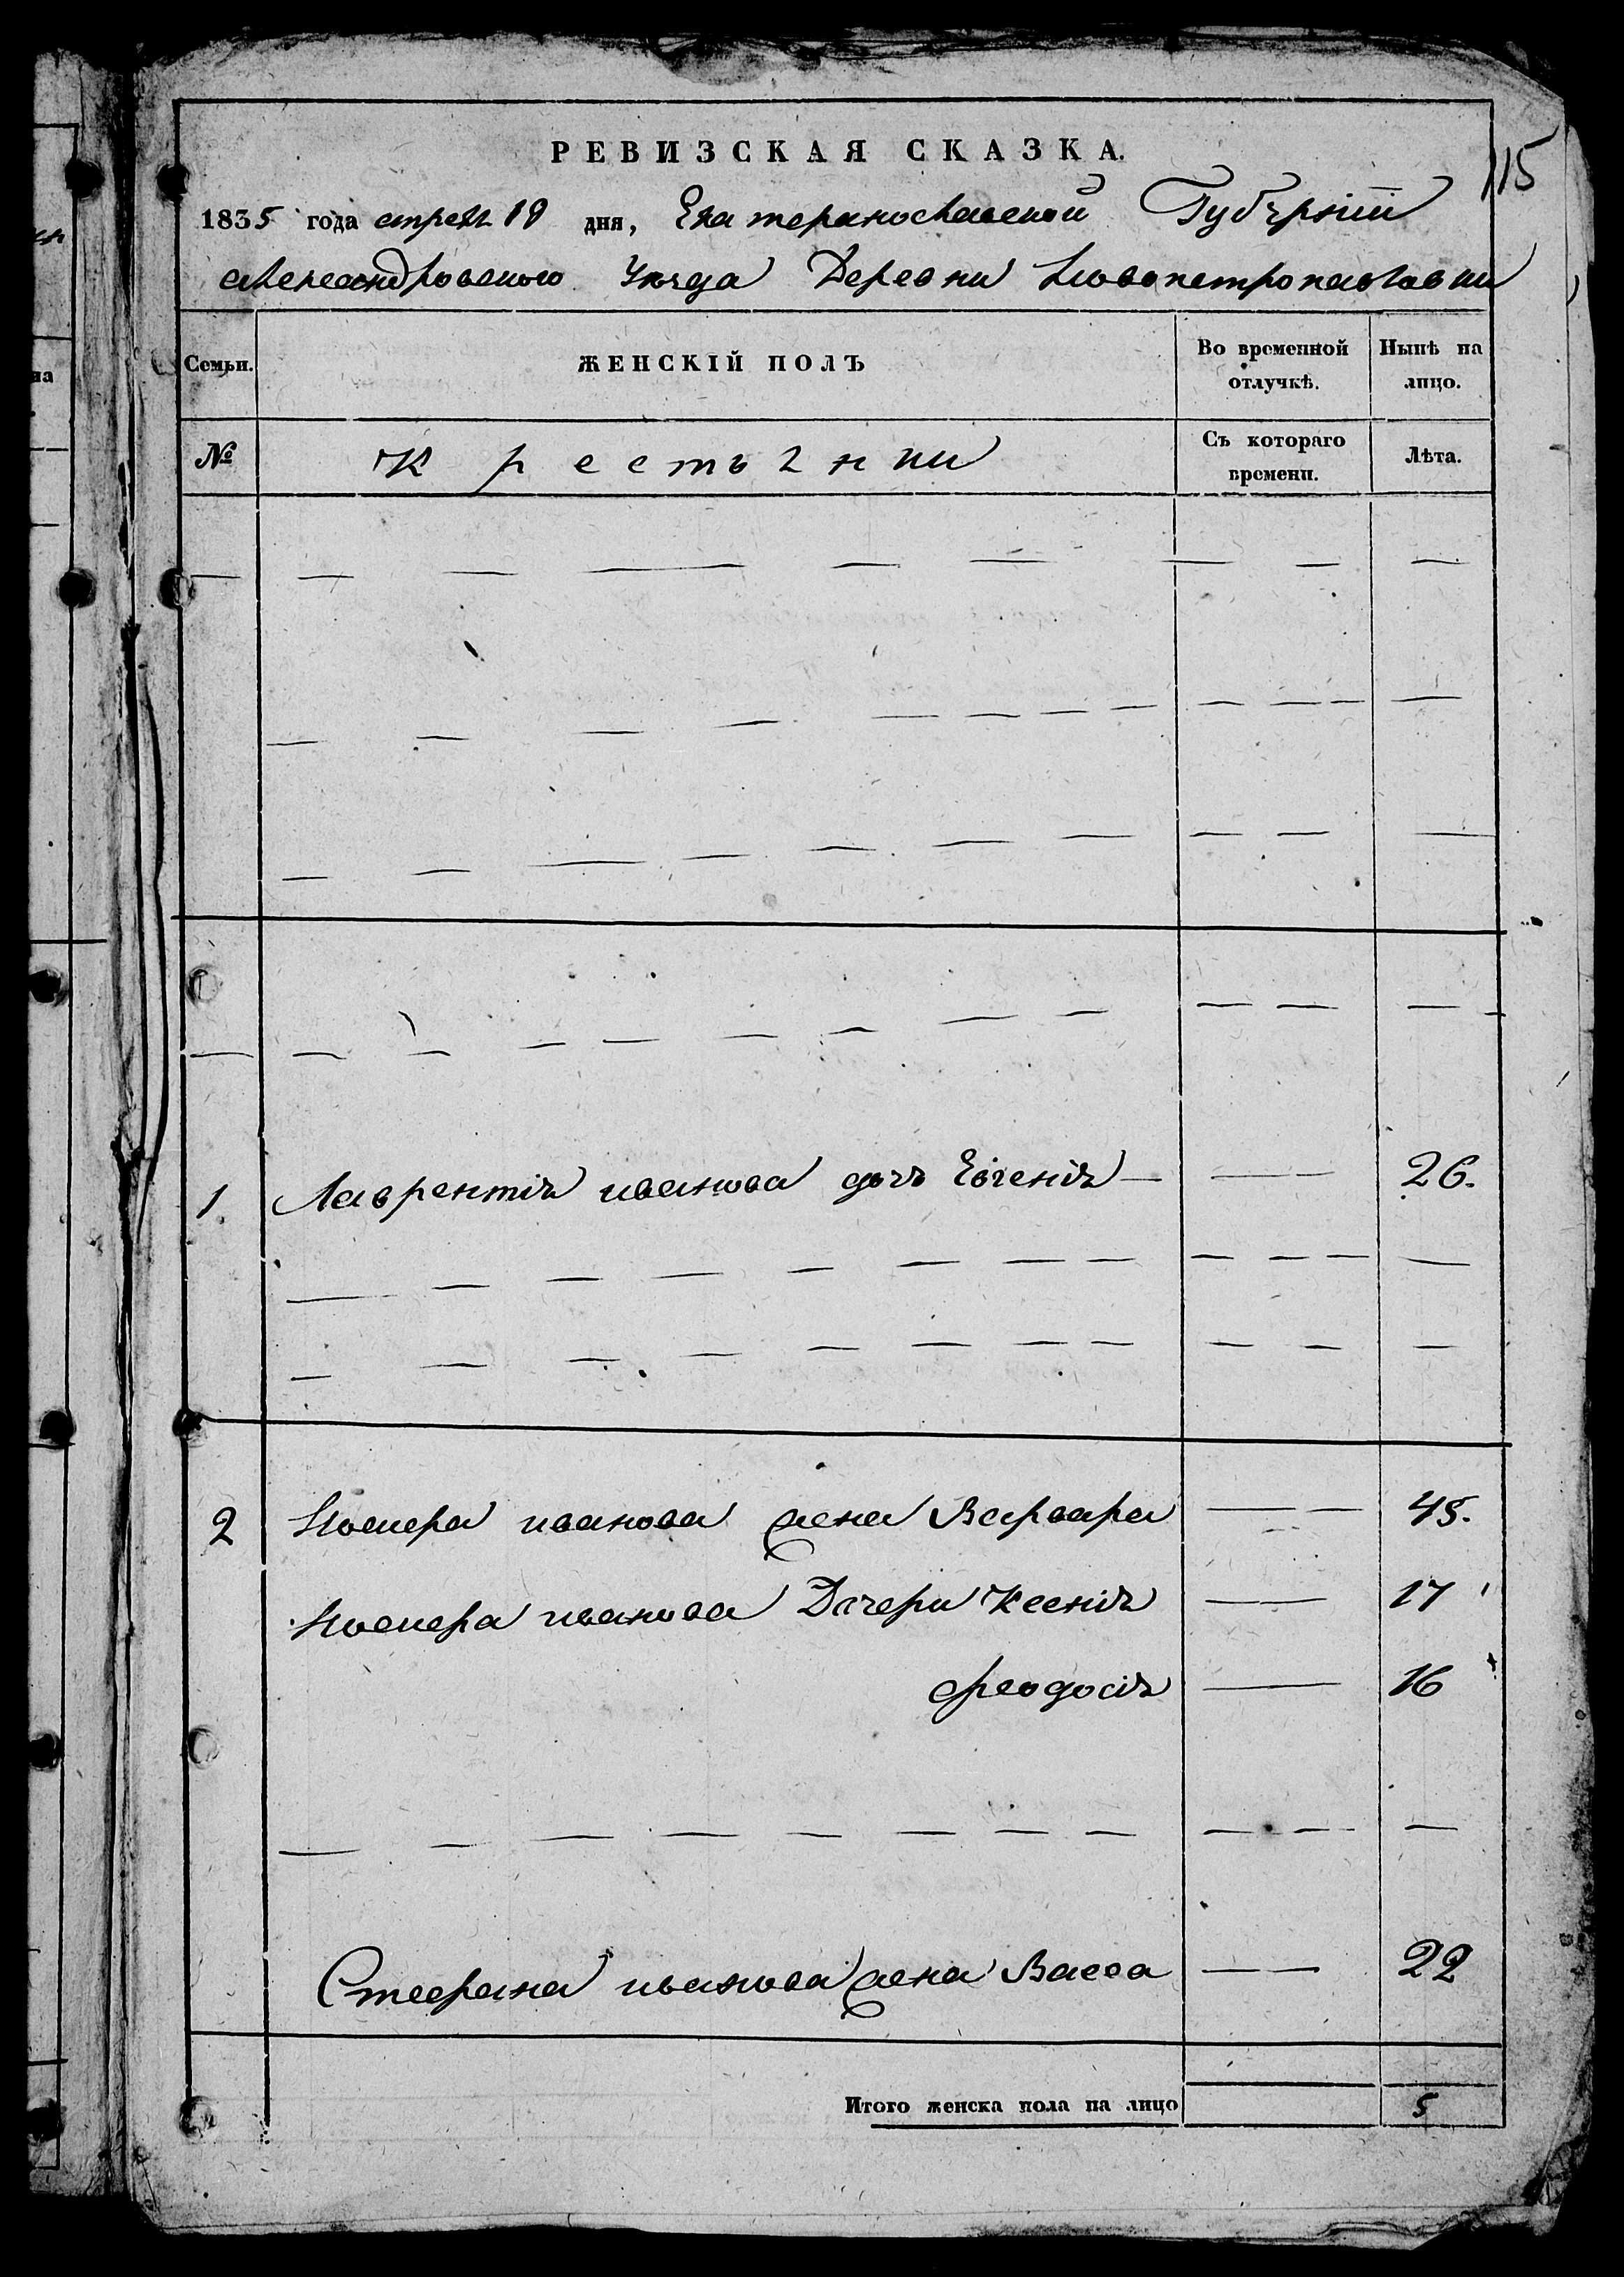 РЕВИЗСКАЯ СКАЗКА.
115
1835 года апреля 19 дня, Екатеринославской Губерніи
Александровскаго Уезда Деревни Новопетропавловки
Семьи. ЖЕНСКІЙ ПОЛЪ Во временной отлучкѣ. Нынѣ на лицо.
№ Крестьянки Съ котораго времени. Лѣта.
1 Лаврентія иванова дочь Евгенія 26.
2 иванова жена Варвара 45.
иванова Дочери Ксенія 17
Феодосія 16
Стефана иванова жена Васса 22
Итого женска пола на лицо 5